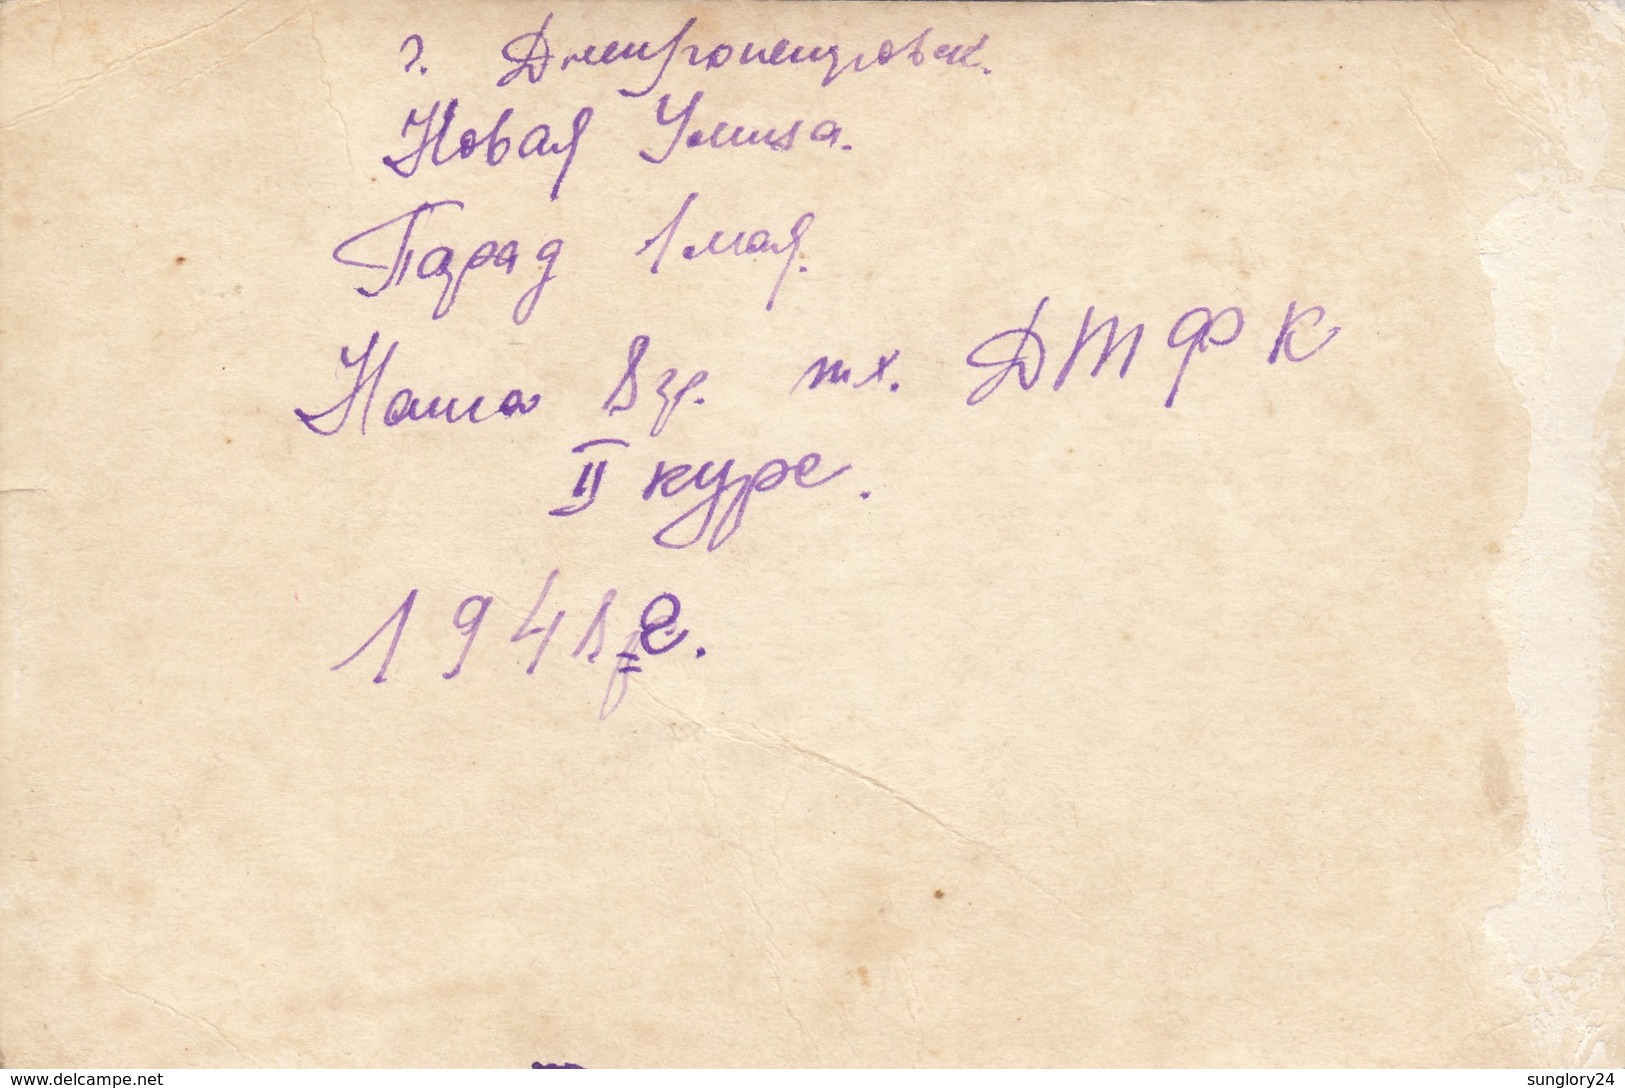 г. Днепропетровск.
Новая Улица.
Парад 1 мая.
Наша гр. ДТФК
II курс.
194 г.
www.delcampe.net
sunglory24